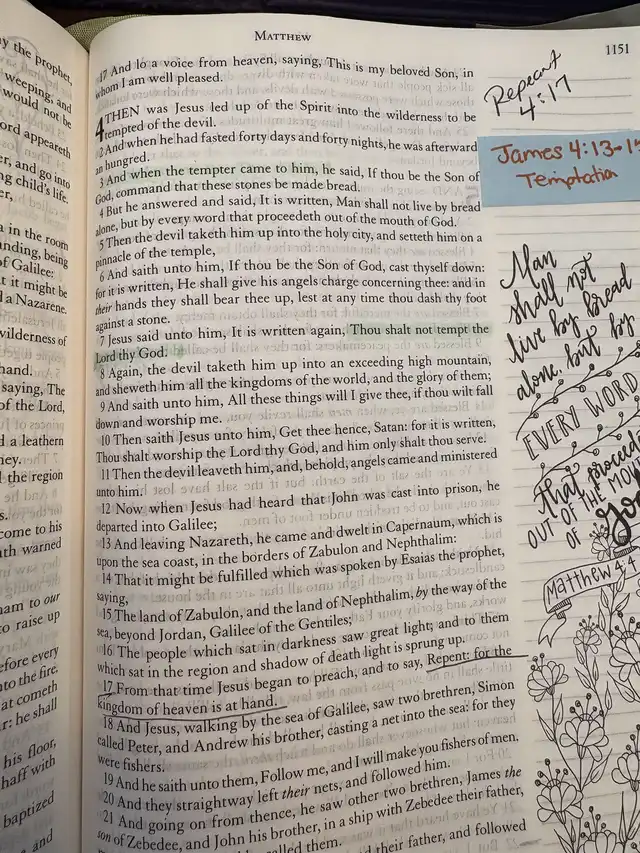 MATTHEW
1151
y the prophet,
weeping, and
would not be
ord appeareth
er, and go into
ng child's life.
er,
a in the room
unding, being
of Galilee:
t it might be
d a Nazarene.
wilderness of
hand.
saying, The
of the Lord,
d a leathern
ney.
d the region
s.
come to his
ath warned
ham to our
to raise up
efore every
nto the fire.
at cometh
r: he shall
his floor,
haff with
baptized
and
17 And lo a voice from heaven, saying, This is my beloved Son, in
whom I am well pleased.
4 THEN was Jesus led up of the Spirit into the wilderness to be
tempted of the devil.
2 And when he had fasted forty days and forty nights, he was afterward
an hungred.
3 And when the tempter came to him, he said, If thou be the Son of
God, command that these stones be made bread.
4 But he answered and said, It is written, Man shall not live by bread
alone, but by every word that proceedeth out of the mouth of God.
5 Then the devil taketh him up into the holy city, and setteth him on a
pinnacle of the temple,
6 And saith unto him, If thou be the Son of God, cast thyself down:
for it is written, He shall give his angels charge concerning thee: and in
their hands they shall bear thee up, lest at any time thou dash thy foot
against a stone.
7 Jesus said unto him, It is written again, Thou shalt not tempt the
Lord thy God.
8 Again, the devil taketh him up into an exceeding high mountain,
and sheweth him all the kingdoms of the world, and the glory of them;
9 And saith unto him, All these things will I give thee, if thou wilt fall
down and worship me.
10 Then saith Jesus unto him, Get thee hence, Satan: for it is written,
Thou shalt worship the Lord thy God, and him only shalt thou serve.
11 Then the devil leaveth him, and, behold, angels came and ministered
unto him.
12 Now when Jesus had heard that John was cast into prison, he
departed into Galilee;
13 And leaving Nazareth, he came and dwelt in Capernaum, which is
upon the sea coast, in the borders of Zabulon and Nephthalim:
14 That it might be fulfilled which was spoken by Esaias the prophet,
saying,
15 The land of Zabulon, and the land of Nephthalim, by the way of the
sea, beyond Jordan, Galilee of the Gentiles;
16 The people which sat in darkness saw great light; and to them
which sat in the region and shadow of death light is sprung up.
17 From that time Jesus began to preach, and to say, Repent: for the
kingdom of heaven is at hand.
18 And Jesus, walking by the sea of Galilee, saw two brethren, Simon
called Peter, and Andrew his brother, casting a net into the sea: for they
were fishers.
19 And he saith unto them, Follow me, and I will make you fishers of men.
20 And they straightway left their nets, and followed him.
21 And going on from thence, he saw other two brethren, James the
son of Zebedee, and John his brother, in a ship with Zebedee their father,
called them.
their father, and followed
Repent
4:17
James 4:13-15
Temptation
Man
shall not
live by bread
alone, but by
EVERY WORD
that proceed
OUT OF THE MOU
OF
Matthew 4:4